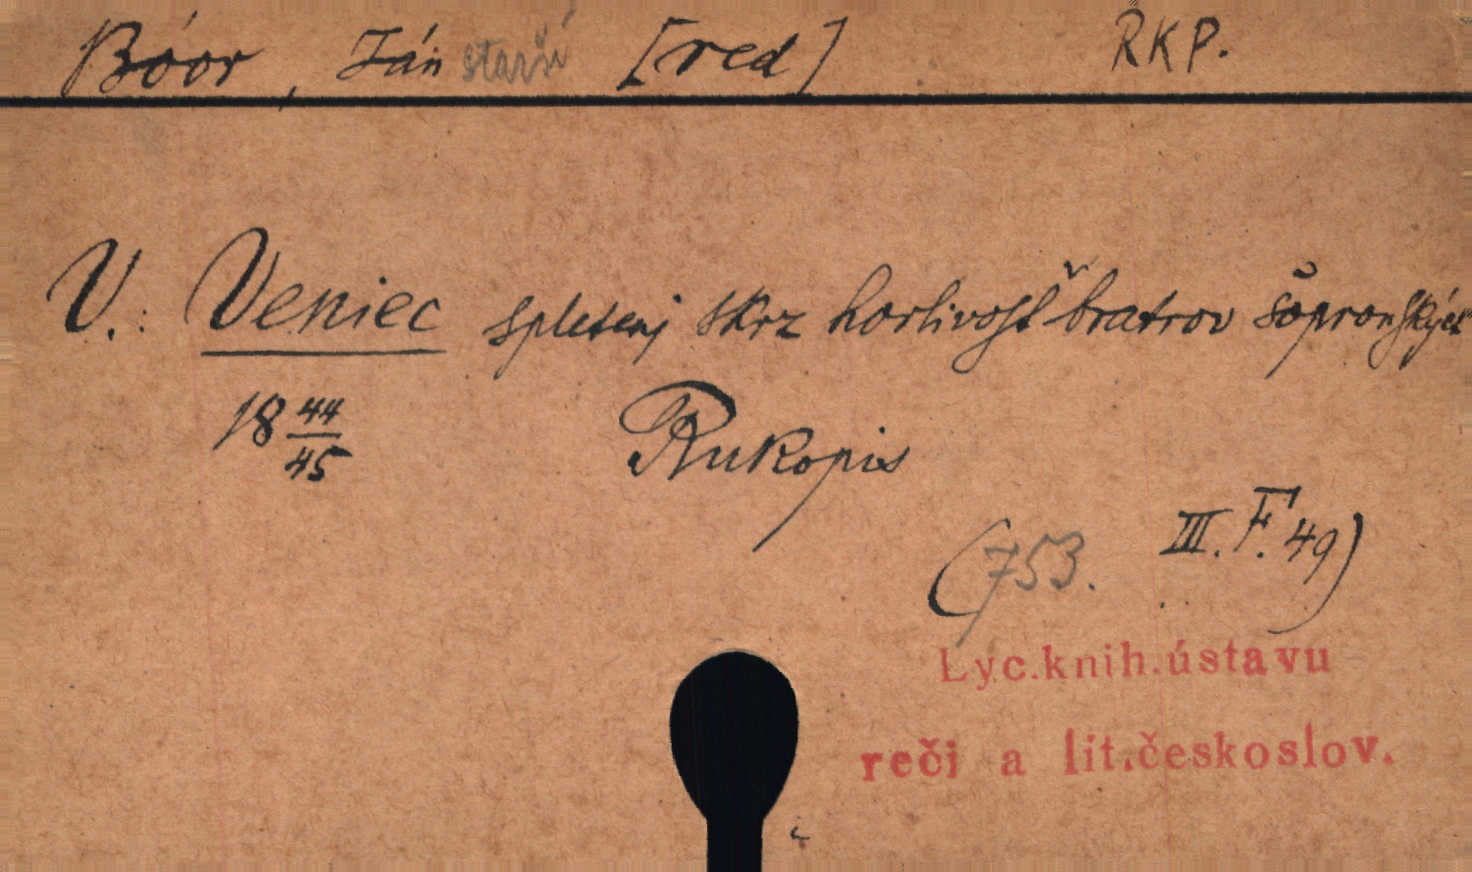 Bóor, Ján starší [red] RKP.
V.: Veniec spletený skrz horlivosť bratrov šopronských
18 44/45 Rukopis
(753. III. F. 49)
Lyc.knih.ústavu
reči a lit.českoslov.